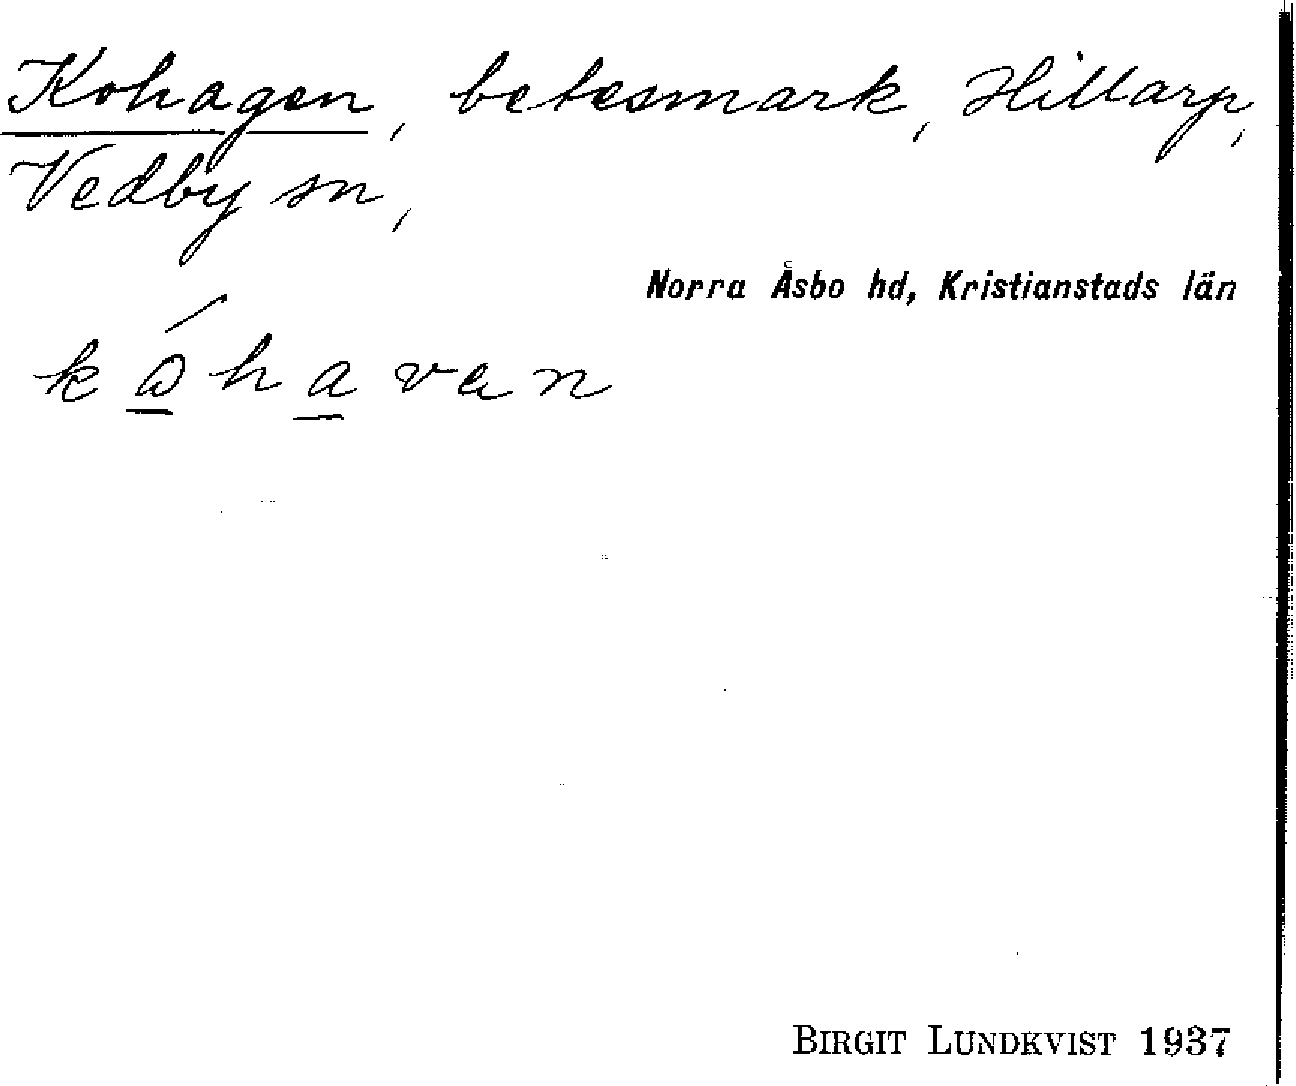 Kohagen, betesmark, Hillarp,
Vedby sn,
Norra Åsbo hd, Kristianstads län
kåhavan
BIRGIT LUNDKVIST 1937